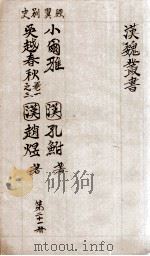 漢魏叢書
經翼
小爾雅 漢孔鮒著
別史
吳越春秋 漢趙煜著
第二十一冊